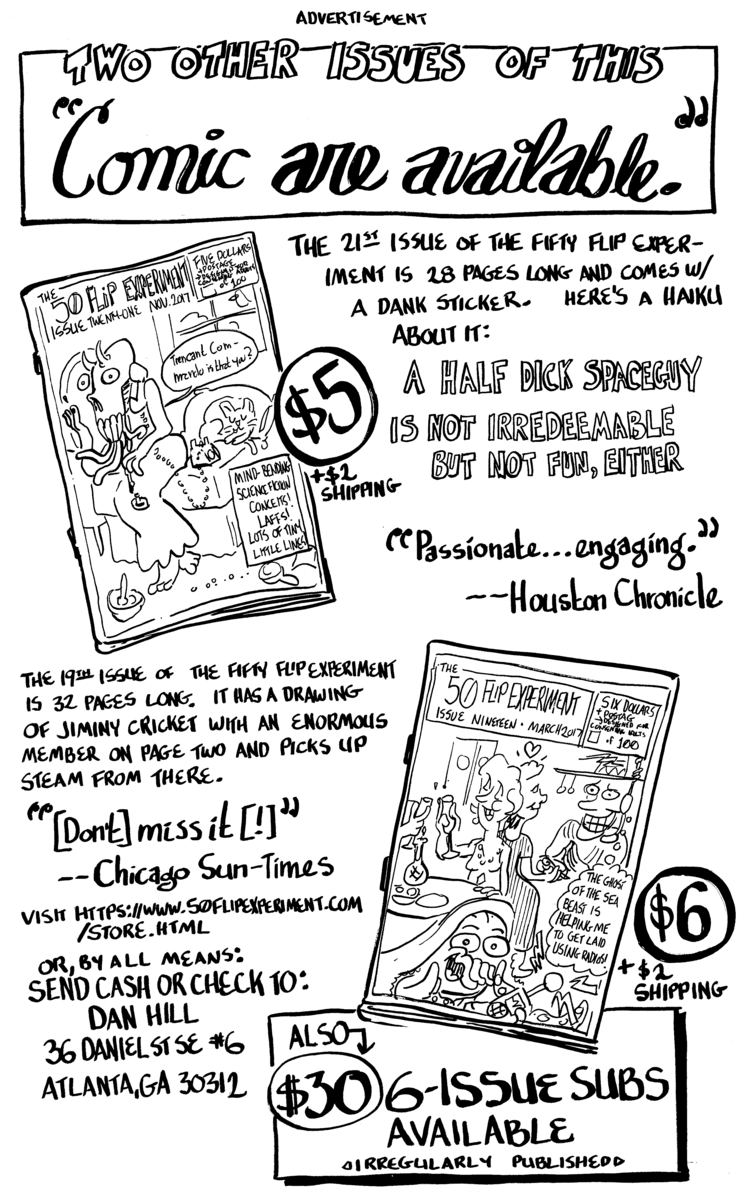 ADVERTISEMENT
TWO OTHER ISSUES OF THIS
"Comic are available."
THE 21ST ISSUE OF THE FIFTY FLIP EXPER-
IMENT IS 28 PAGES LONG AND COMES W/
A DANK STICKER. HERE'S A HAIKU
ABOUT IT:
A HALF DICK SPACEGUY
IS NOT IRREDEEMABLE
BUT NOT FUN, EITHER
THE
50 FLIP EXPERIMENT
ISSUE TWENTY-ONE NOV. 2017
FIVE DOLLARS
+ POSTAGE
of 100
Trencant Com-
mevelo is that you?
MIND-BENDING
SCIENCE FICTION
CONCEITS!
LAFFS!
LOTS OF TINY
LITTLE LINES
$5
+$2
SHIPPING
"Passionate...engaging."
--Houston Chronicle
THE 19TH ISSUE OF THE FIFTY FLIP EXPERIMENT
IS 32 PAGES LONG. IT HAS A DRAWING
OF JIMINY CRICKET WITH AN ENORMOUS
MEMBER ON PAGE TWO AND PICKS UP
STEAM FROM THERE.
"[Don't] miss it [!]"
--Chicago Sun-Times
VISIT HTTPS://WWW.50FLIPEXPERIMENT.COM
/STORE.HTML
OR, BY ALL MEANS:
SEND CASH OR CHECK TO:
DAN HILL
36 DANIEL ST SE #6
ATLANTA, GA 30312
THE
50 FLIP EXPERIMENT
ISSUE NINETEEN • MARCH 2017
SIX DOLLARS
+ POSTAG
→DESIGNED FOR
of 100
THE GHOST
OF THE SEA
BEAST IS
HELPING ME
TO GET LAID
USING RADIOS!
$6
+$2
SHIPPING
ALSO
$30 6-ISSUE SUBS
AVAILABLE
IRREGULARLY PUBLISHED